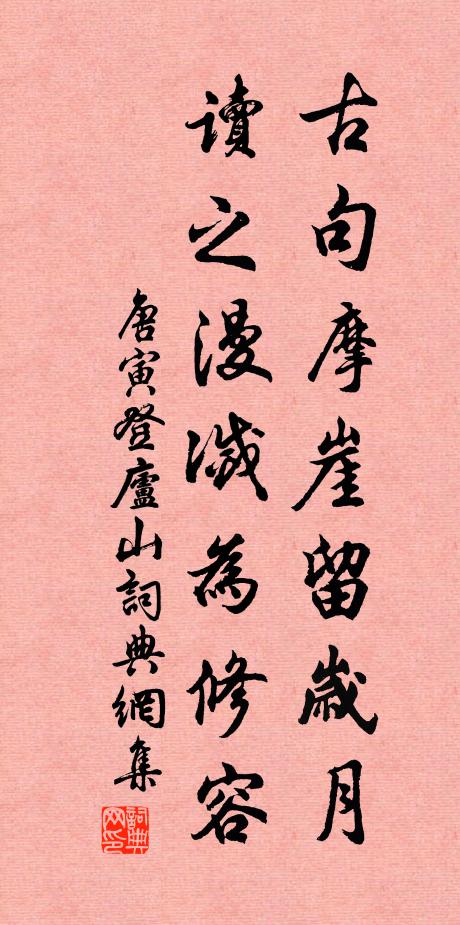 古句摩崖留歲月
讀之漫滅為修容
唐寅登廬山詞典網集
詞典網印